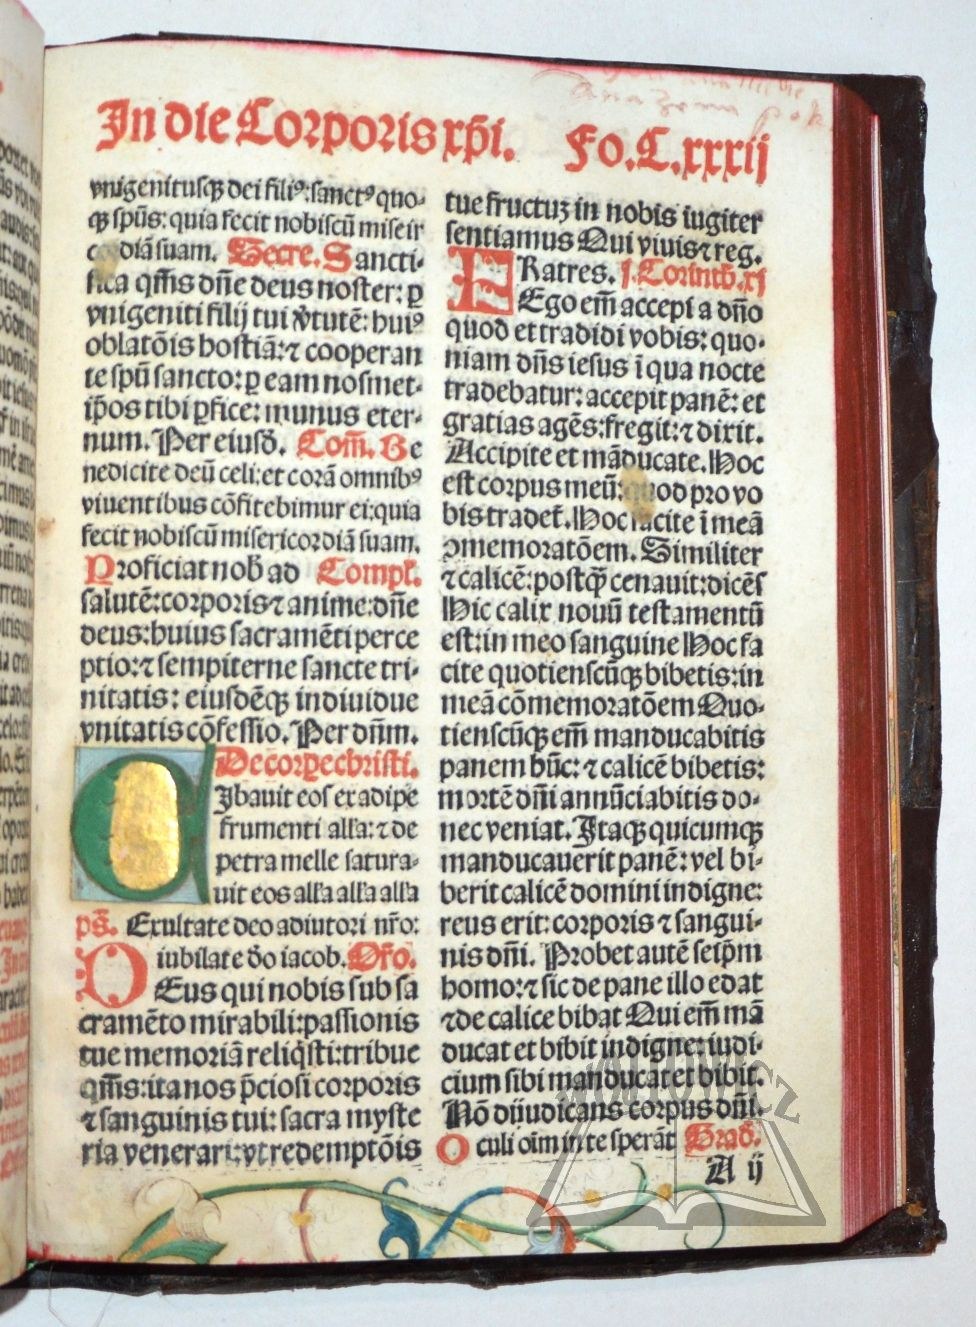 In die Corporis xp̄i. Fo.C.xxxij
vnigenitusqꝫ dei filiꝰ: sanctꝰ quo-
qꝫ spūs: quia fecit nobiscū miseir
c diā suam. Secre. Sancti-
fica q̄ms dn̄e deus noster: ꝑ
vnigeniti filij tui v̄tutē: huiꝰ
oblatōis hostiā: ⁊ cooperan
te spū sancto: ꝑ eam nosmet-
ip̄os tibi ꝑfice: munus eter-
num. Per eiusd̄. Com̄. Be
nedicite deū celi: et corā omnibꝰ
viuentibus cōfitebimur ei: quia
fecit nobiscū misericordiā suam.
Proficiat nob̄ ad Compl̄.
salutē: corporis ⁊ anime: dn̄e
deus: huius sacramēti perce
ptio: ⁊ sempiterne sancte tri-
nitatis: eiusdēqꝫ indiuidue
vnitatis cōfessio. Per dn̄m.
De corꝑe christi.
Cibauit eos ex adipe
frumenti all'a: ⁊ de
petra melle satura-
uit eos all'a all'a all'a
ps̄. Exultate deo adiutori nr̄o:
iubilate d̄o iacob. Or̄o.
DEus qui nobis sub sa
cramēto mirabili: passionis
tue memoriā reliq̄sti: tribue
q̄ms: ita nos p̄ciosi corporis
⁊ sanguinis tui: sacra myste
ria venerari: vt redemptōis
tue fructuꝫ in nobis iugiter
sentiamus Qui viuis ⁊ reg.
FRatres. j. Corinth. xj
Ego em̄ accepi a dn̄o
quod et tradidi vobis: quo-
niam dn̄s iesus ī qua nocte
tradebatur: accepit panē: et
gratias agēs: fregit: ⁊ dixit.
Accipite et māducate. Hoc
est corpus meū: quod pro vo
bis tradet̄. Hoc facite ī meā
ꝯmemoratōem. Similiter
⁊ calicē: postq̄ cenauit: dicēs
Hic calix nouū testamentū
est: in meo sanguine Hoc fa
cite quotienscūqꝫ bibetis: in
meā cōmemoratōem Quo-
tienscūqꝫ em̄ manducabitis
panem hūc: ⁊ calicē bibetis:
mortē dn̄i annūciabitis do-
nec veniat. Itaqꝫ quicumqꝫ
manducauerit panē: vel bi-
berit calicē domini indigne:
reus erit: corporis ⁊ sangui-
nis dn̄i. Probet autē seip̄m
homo: ⁊ sic de pane illo edat
⁊ de calice bibat Qui em̄ mā
ducat et bibit indigne: iudi-
cium sibi manducat et bibit.
Nō dijudicans corpus dn̄i.
Oculi oīm in te sperāt Grad̄.
A ij